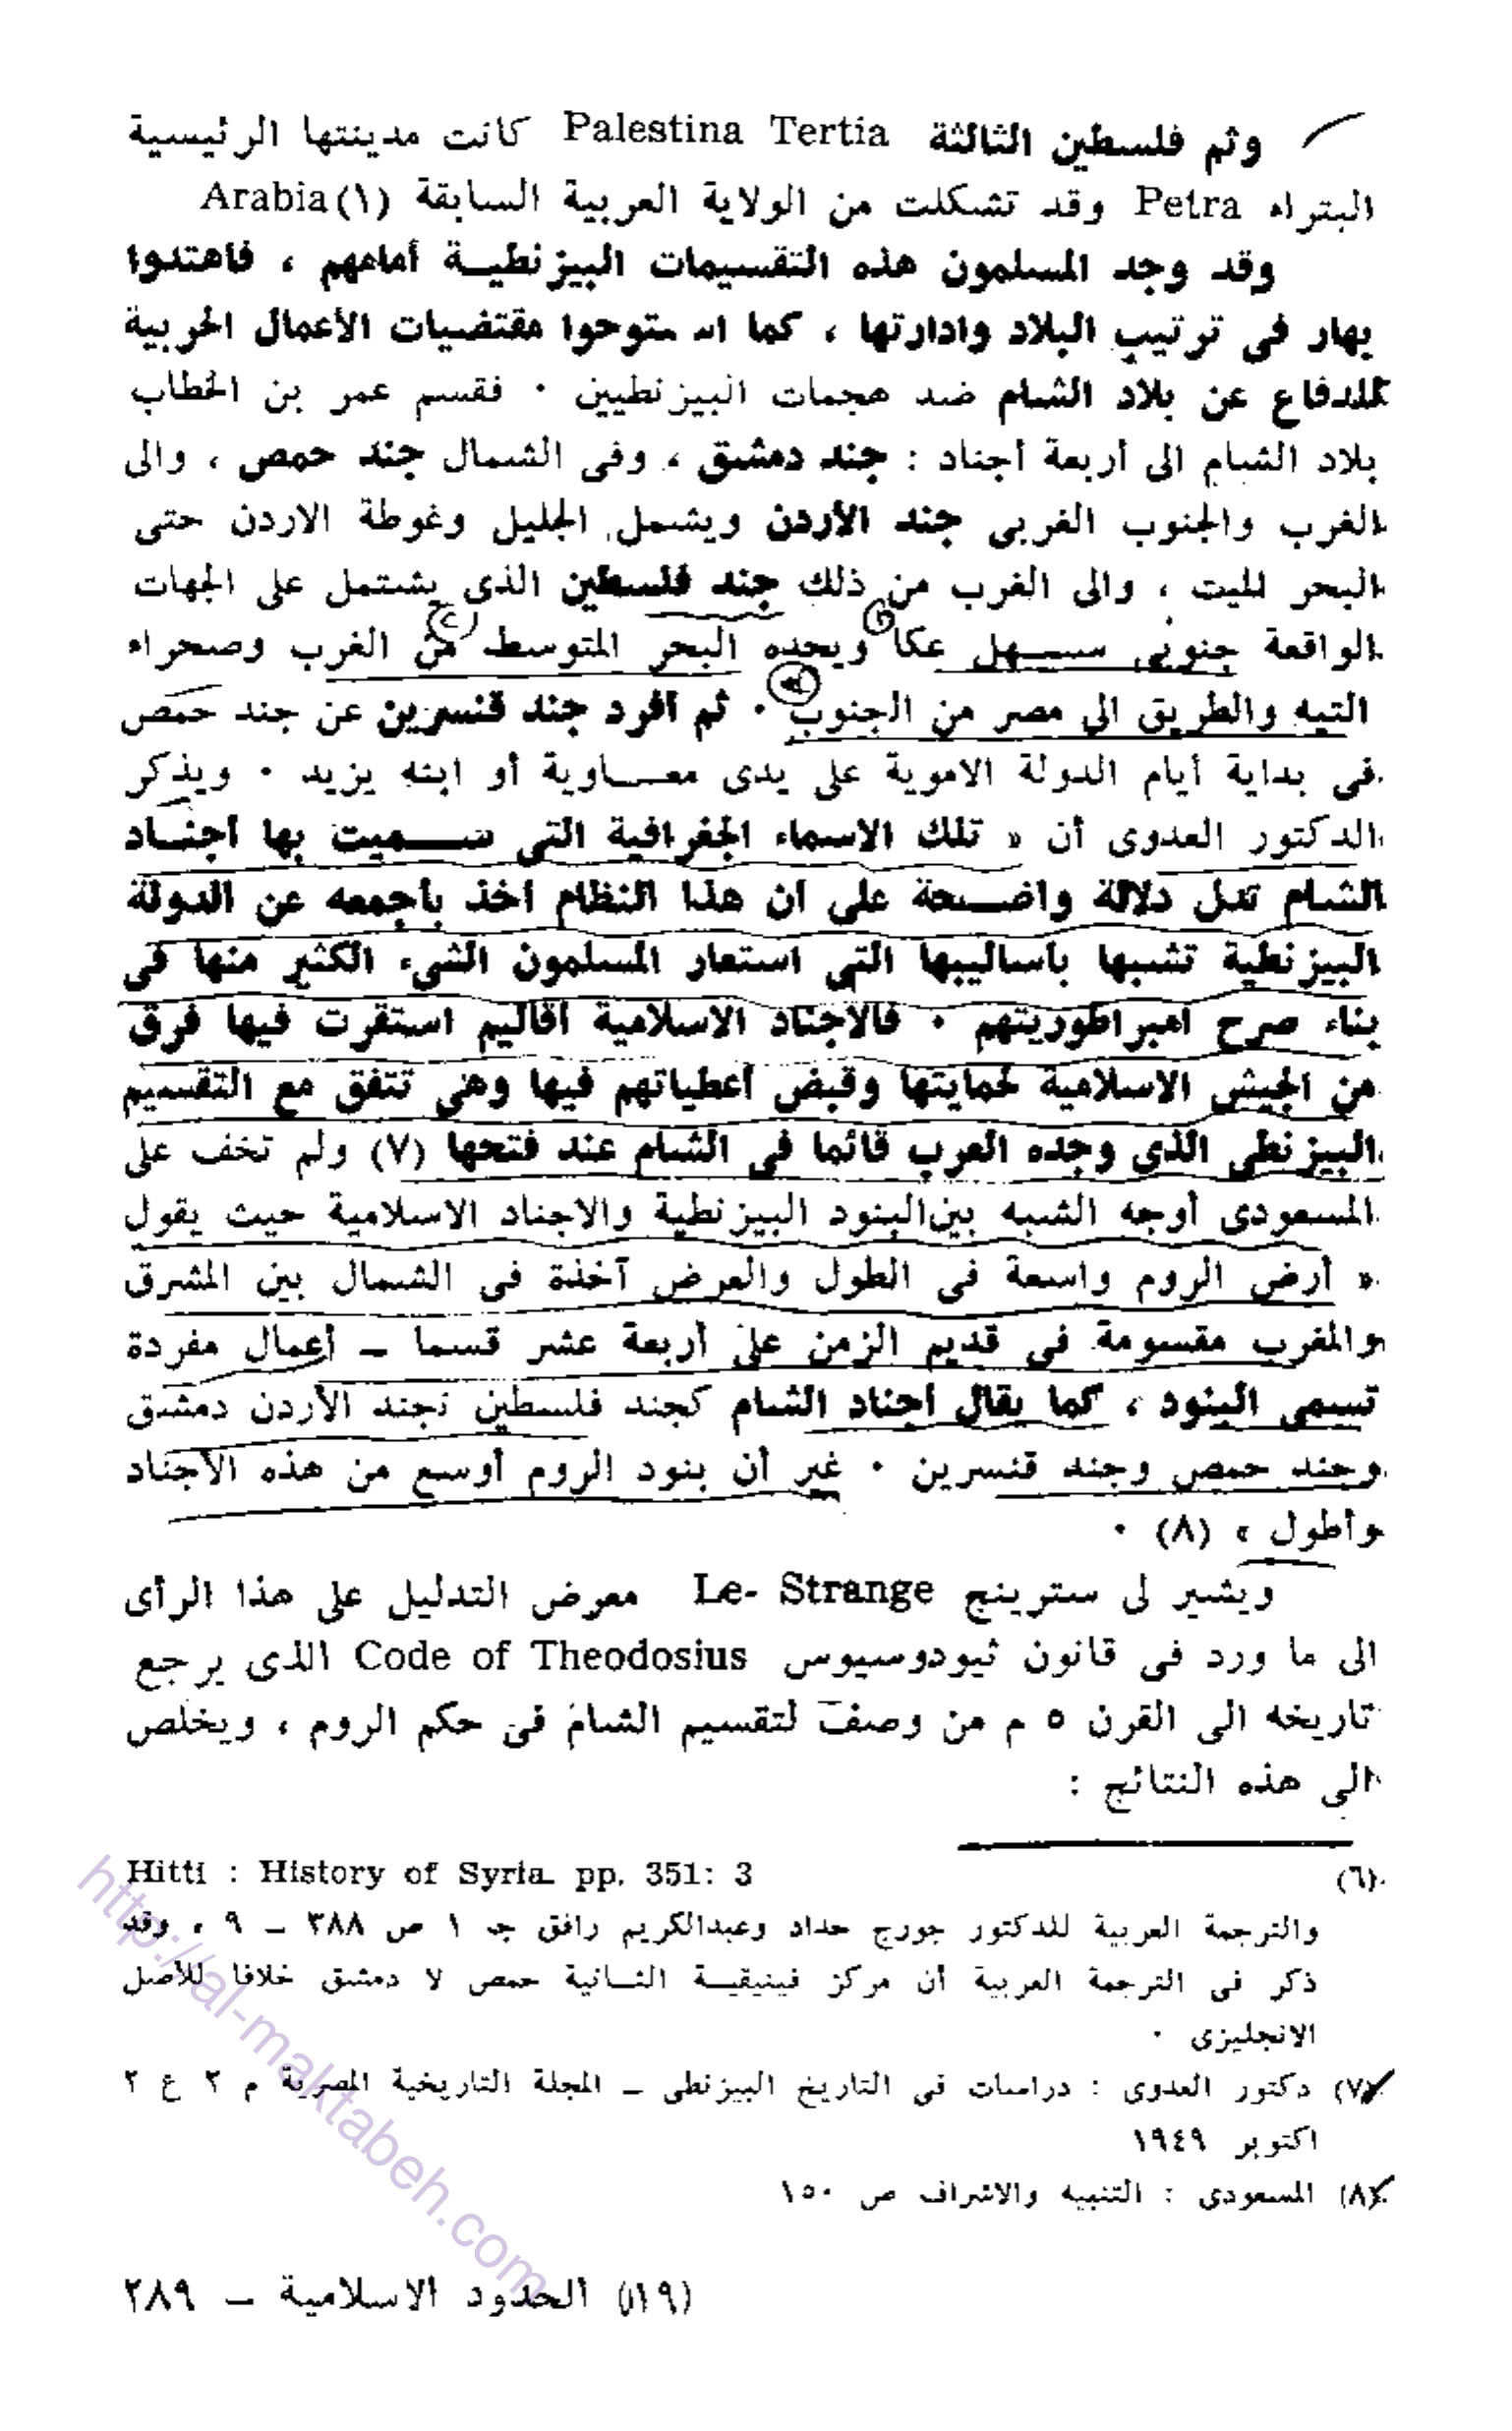 وثم فلسطين الثالثة Palestina Tertia كانت مدينتها الرئيسية
البتراء Petra وقد تشكلت من الولاية العربية السابقة Arabia(١)
وقد وجد المسلمون هذه التقسيمات البيزنطيـة أمامهم ، فاهتدوا
بهار فى ترتيب البلاد وادارتها ، كما استوحوا مقتضيات الأعمال الحربية
للدفاع عن بلاد الشام ضد هجمات البيزنطيين · فقسم عمر بن الخطاب
بلاد الشام الى أربعة أجناد : جند دمشق ، وفى الشمال جند حمص ، والى
الغرب والجنوب الغربى جند الأردن ويشمل الجليل وغوطة الاردن حتى
البحر الميت ، والى الغرب من ذلك جند فلسطين الذى يشتمل على الجهات
الواقعة جنوبى سـهل عكا ويحده البحر المتوسط من الغرب وصحراء
التيه والطريق الى مصر من الجنوب · ثم أفرد جند قنسرين عن جند حمص
فى بداية أيام الدولة الاموية على يدى معـاوية أو ابنه يزيد · ويذكر
الدكتور العدوى أن « تلك الاسماء الجغرافية التى سـميت بها أجنـاد
الشام تدل دلالة واضـحة على ان هذا النظام أخذ بأجمعه عن الدولة
البيزنطية تشبها بأساليبها التى استعار المسلمون الشىء الكثير منها فى
بناء صرح امبراطوريتهم · فالاجناد الاسلامية أقاليم استقرت فيها فرق
من الجيش الاسلامية لحمايتها وقبض أعطياتهم فيها وهى تتفق مع التقسيم
البيزنطى الذى وجده العرب قائما فى الشام عند فتحها (٧) ولم تخف على
المسعودى أوجه الشبه بين البنود البيزنطية والاجناد الاسلامية حيث يقول
« أرض الروم واسعة فى الطول والعرض آخذة فى الشمال بين المشرق
والمغرب مقسومة فى قديم الزمن على أربعة عشر قسما ـ أعمال مفردة
تسمى البنود ، كما يقال أجناد الشام كجند فلسطين نجند الأردن دمشق
وجند حمص وجند قنسرين · غير أن بنود الروم أوسع من هذه الأجناد
وأطول » (٨) ·
ويشير لى سترينج Le- Strange معرض التدليل على هذا الرأى
الى ما ورد فى قانون ثيودوسيوس Code of Theodosius الذى يرجع
تاريخه الى القرن ٥ م من وصف لتقسيم الشام فى حكم الروم ، ويخلص
الى هذه النتائج :
(٦) Hitti : History of Syria. pp. 351: 3
والترجمة العربية للدكتور جورج حداد وعبدالكريم رافق جـ ١ ص ٣٨٨ ـ ٩ ، وقد
ذكر فى الترجمة العربية أن مركز فينيقيـة الثـانية حمص لا دمشق خلافا للأصل
الانجليزى ·
(٧) دكتور العدوى : دراسات فى التاريخ البيزنطى ـ المجلة التاريخية المصرية م ٢ ع ٢
اكتوبر ١٩٤٩
(٨) المسعودى : التنبيه والاشراف ص ١٥٠
(١٩) الحدود الاسلامية ـ ٢٨٩
http://al-maktabeh.com